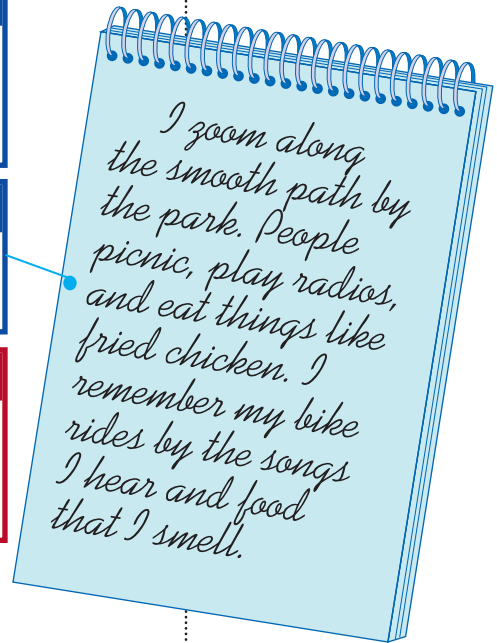 I zoom along
the smooth path by
the park. People
picnic, play radios,
and eat things like
fried chicken. I
remember my bike
rides by the songs
I hear and food
that I smell.